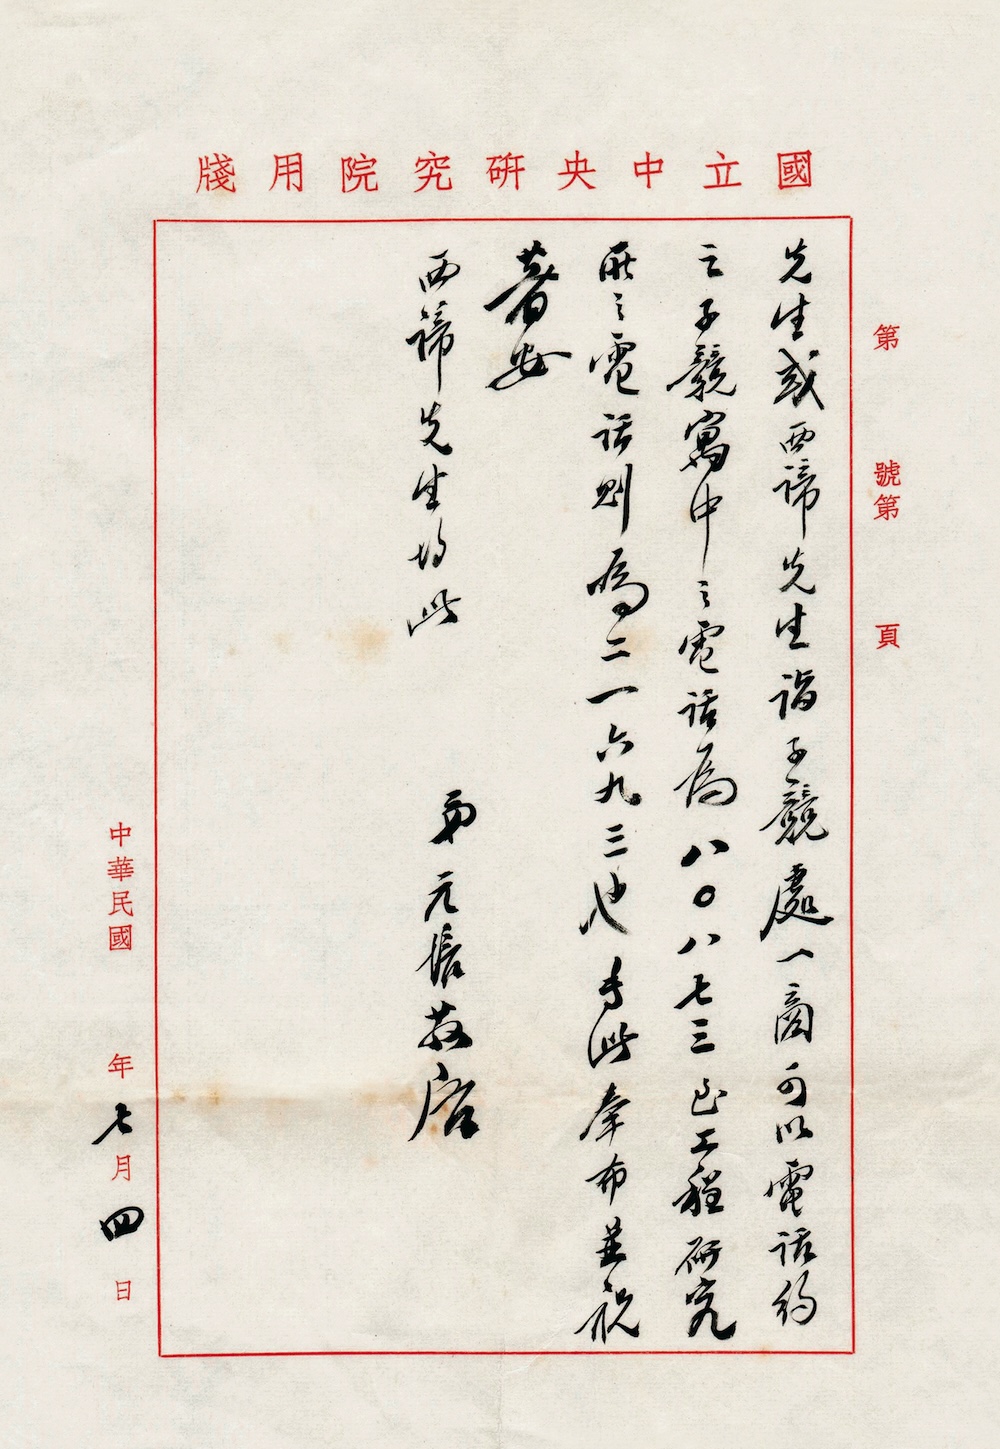 國立中央研究院用牋
第　號第　頁
先生或西諦先生詣子競處一商可以電話約
之子競寓中之電話為八〇八七三至工程研究
所之電話則為二一六九三也專此奉布並祝
著安
西諦先生均此
弟元張敬啓
中華民國　年七月四日